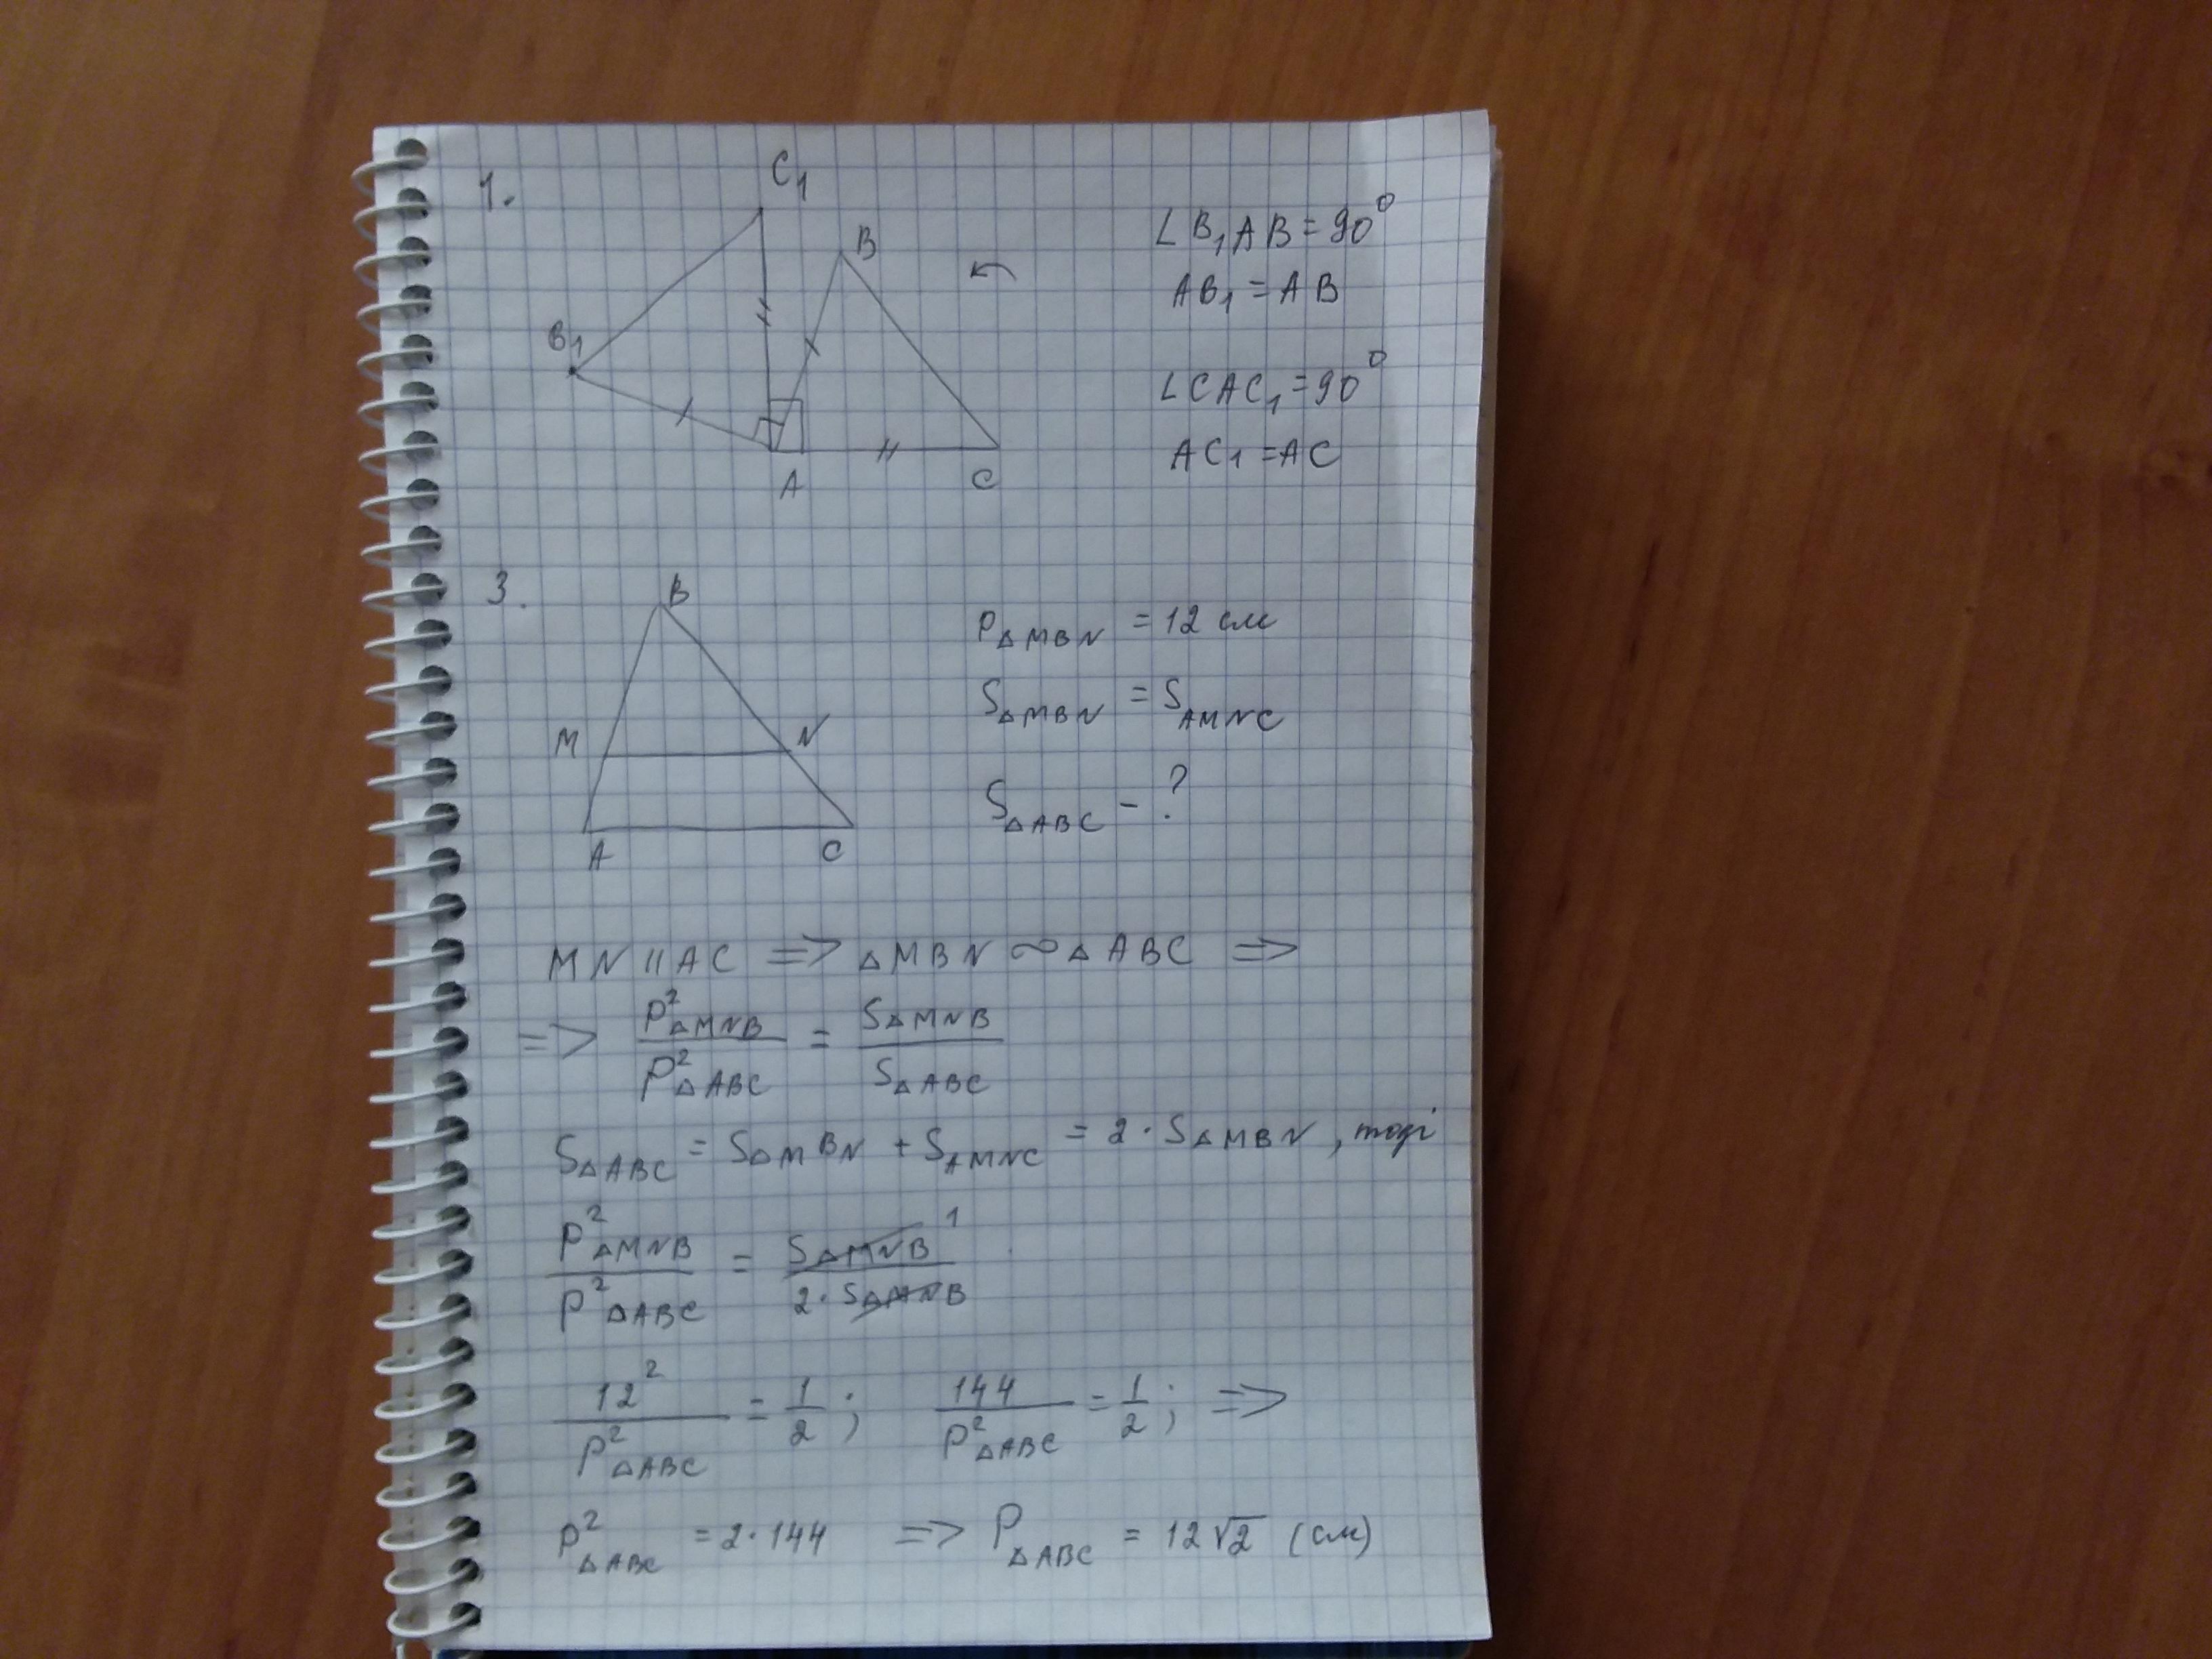 1.
C₁
B
B₁
A
C
∠B₁AB = 90°
AB₁ = AB
∠CAC₁ = 90°
AC₁ = AC
3.
B
M
N
A
C
P△MBN = 12 см
S△MBN = S AMNC
S△ABC - ?
MN || AC => △MBN ∞ △ABC =>
=> P²△MNB / P²△ABC = S△MNB / S△ABC
S△ABC = S△MBN + S AMNC = 2 · S△MBN, тоді
P²△MNB / P²△ABC = S△MNB 1 / 2 · S△MNB
12² / P²△ABC = 1/2; 144 / P²△ABC = 1/2; =>
P²△ABC = 2 · 144 => P△ABC = 12√2 (см)